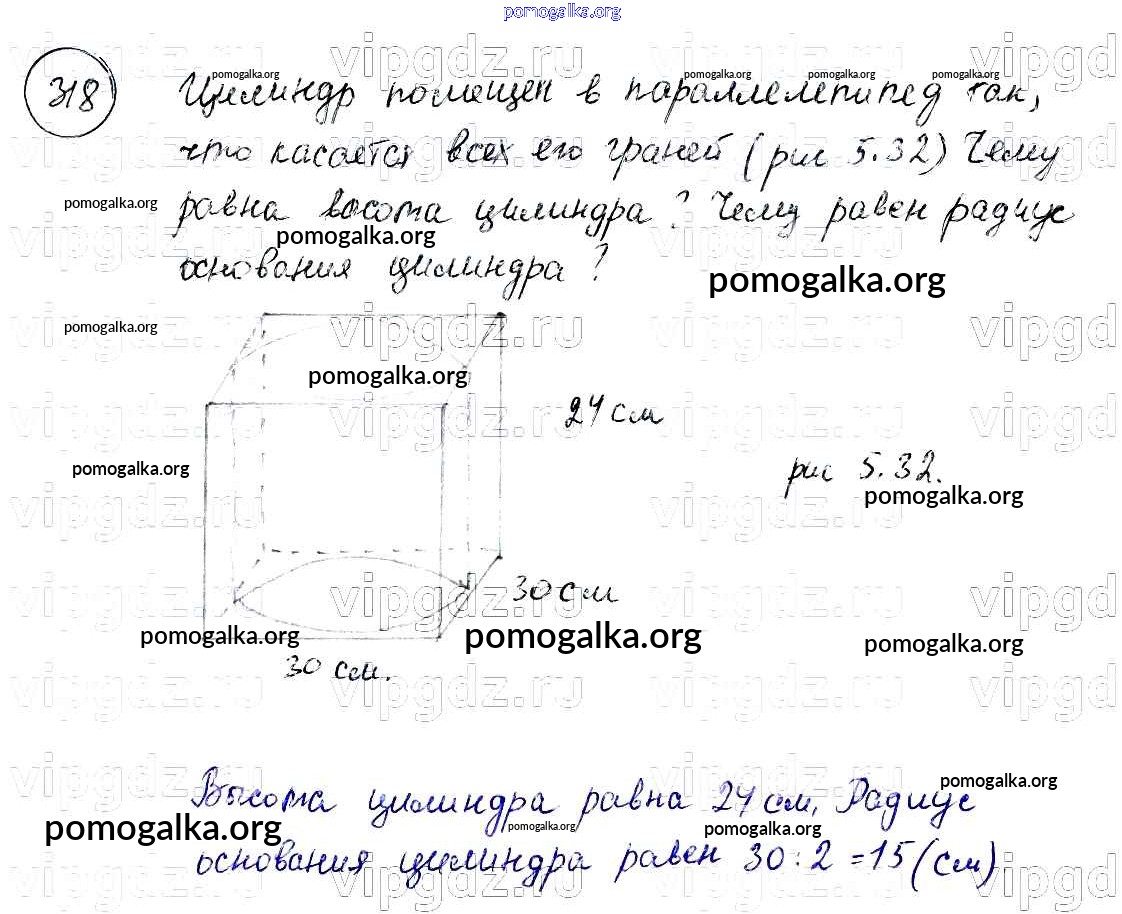 pomogalka.org
318 Цилиндр помещен в параллелепипед так,
что касается всех его граней (рис 5.32) Чему
равна высота цилиндра? Чему равен радиус
основания цилиндра?
24 см
рис 5.32.
30 см
30 см.
Высота цилиндра равна 24 см. Радиус
основания цилиндра равен 30:2=15(см)
vipgdz.ru
pomogalka.org